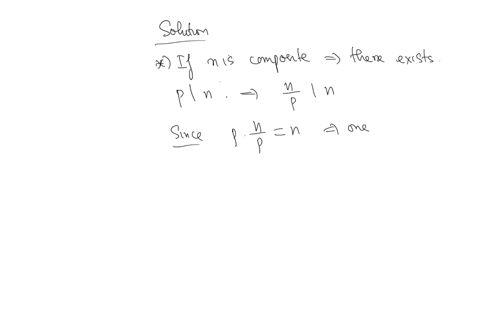 Solution
*) If n is composite ⇒ there exists.
p | n. ⇒ n/p | n
Since p · n/p = n ⇒ one